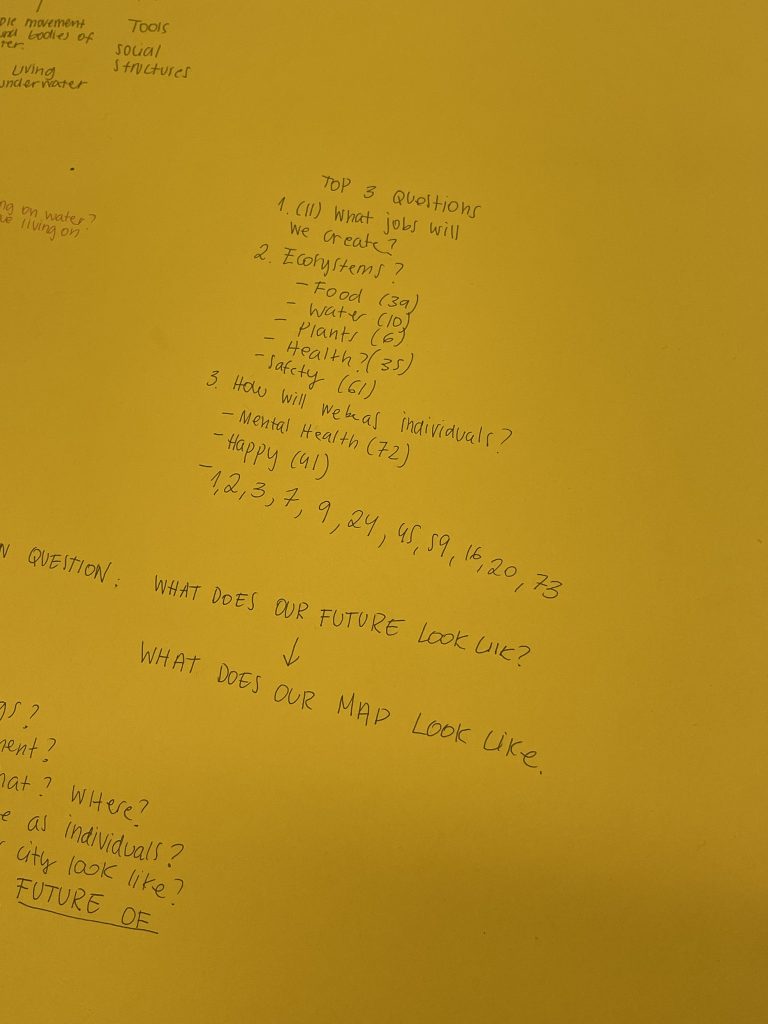 movement
bodies of
Living
underwater
Tools
social
structures
on water?
living on
TOP 3 Questions
1. (11) What jobs will
we create?
2. Ecosystems?
- Food (39)
- Water (10)
- Plants (6)
- Health? (35)
- Safety (61)
3. How will we be as individuals?
- Mental Health (72)
- Happy (41)
- 1, 2, 3, 7, 9, 24, 45, 59, 16, 20, 73
QUESTION: WHAT DOES OUR FUTURE LOOK LIK?
↓
WHAT DOES OUR MAP LOOK LIKE.
? WHere?
as individuals?
city look like?
FUTURE OF